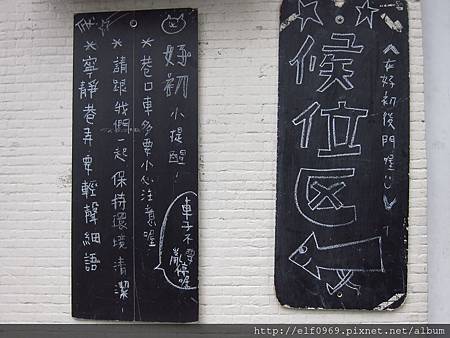 好初小提醒!
*巷口車多要小心注意喔
*請跟我們一起保持環境清潔!
*寧靜巷弄要輕聲細語
車子不要亂停喔
《在好初後門喔!》
候位区
http://elf0969.pixnet.net/album